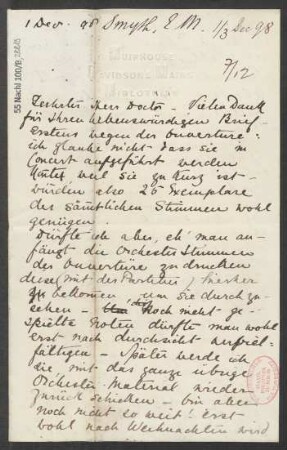 1 Dec. 98 Smyth, E. M. 1/3 Dec 98
7/12
Geehrter Herr Doctor – Vielen Dank
für Ihren liebenswürdigen Brief –
erstens wegen der Ouverture:
ich glaube nicht dass sie in
Concert aufgeführt werden
weil sie zu kurz ist –
würden also 20 Exemplare
der sämtlichen Stimmen wohl
genügen.
Dürfte ich aber, eh' man an-
fängt die Orchester Stimmen
der Ouvertüre zu drucken
diese (mit der Partitur) hierher
zu bekommen um sie durchzu-
sehen – Noch nicht ge-
spielte Noten dürfte man wohl
erst nach Durchsicht vervielfältigen – Später werde ich
die, mit das ganze übrige
Orchester Material wieder
zurück schicken – bin aber
noch nicht so weit! erst
wohl nach Weihnachten wird
55 Nachl 100/B,